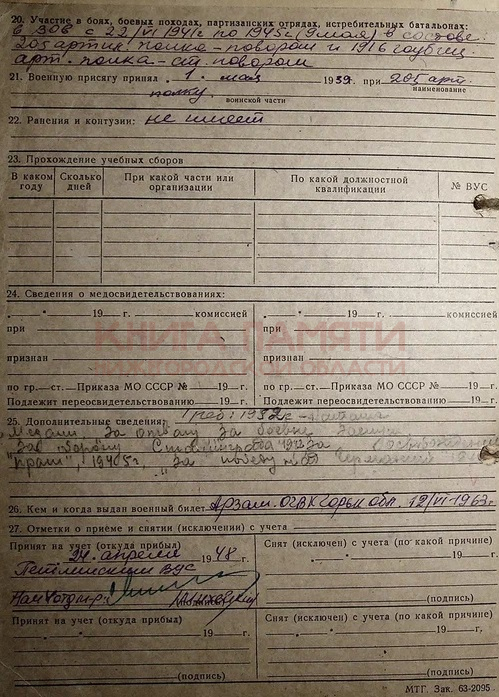 20. Участие в боях, боевых походах, партизанских отрядах, истребительных батальонах:
в ВОВ с 22/VI 1941г по 1945г (9 мая) в составе
205 артик. полка - поваром и 1916
арт. полка - ст. поваром
21. Военную присягу принял „1“ мая 1939 г. при 205 арт.
наименование
полку
воинской части
22. Ранения и контузии: не имеет
23. Прохождение учебных сборов
В каком году
Сколько дней
При какой части или организации
По какой должностной квалификации
№ ВУС
24. Сведения о медосвидетельствованиях:
„ “ 19 г. комиссией
„ “ 19 г. комиссией
при
при
признан
признан
КНИГА ПАМЯТИ
НИЖЕГОРОДСКОЙ ОБЛАСТИ
по гр. ст. Приказа МО СССР № 19 г.
по гр. ст. Приказа МО СССР № 19 г.
Подлежит переосвидетельствованию 19 г.
Подлежит переосвидетельствованию 19 г.
25. Дополнительные сведения:
Медали: За отвагу За боевые
За оборону Сталинграда За
Праги", 1945г, "За победу над Германией
26. Кем и когда выдан военный билет Арзам. ОГВК Горьк. обл. 12/VI-1963г.
27. Отметки о приёме и снятии (исключении) с учета
Принят на учет (откуда прибыл)
Снят (исключен) с учета (по какой причине)
апреля 1948 г.
„ “ 19 г.
ВУС
(подпись)
(подпись)
Принят на учет (откуда прибыл)
Снят (исключен) с учета (по какой причине)
„ “ 19 г.
„ “ 19 г.
(подпись)
(подпись)
МТГ. Зак. 63-2095